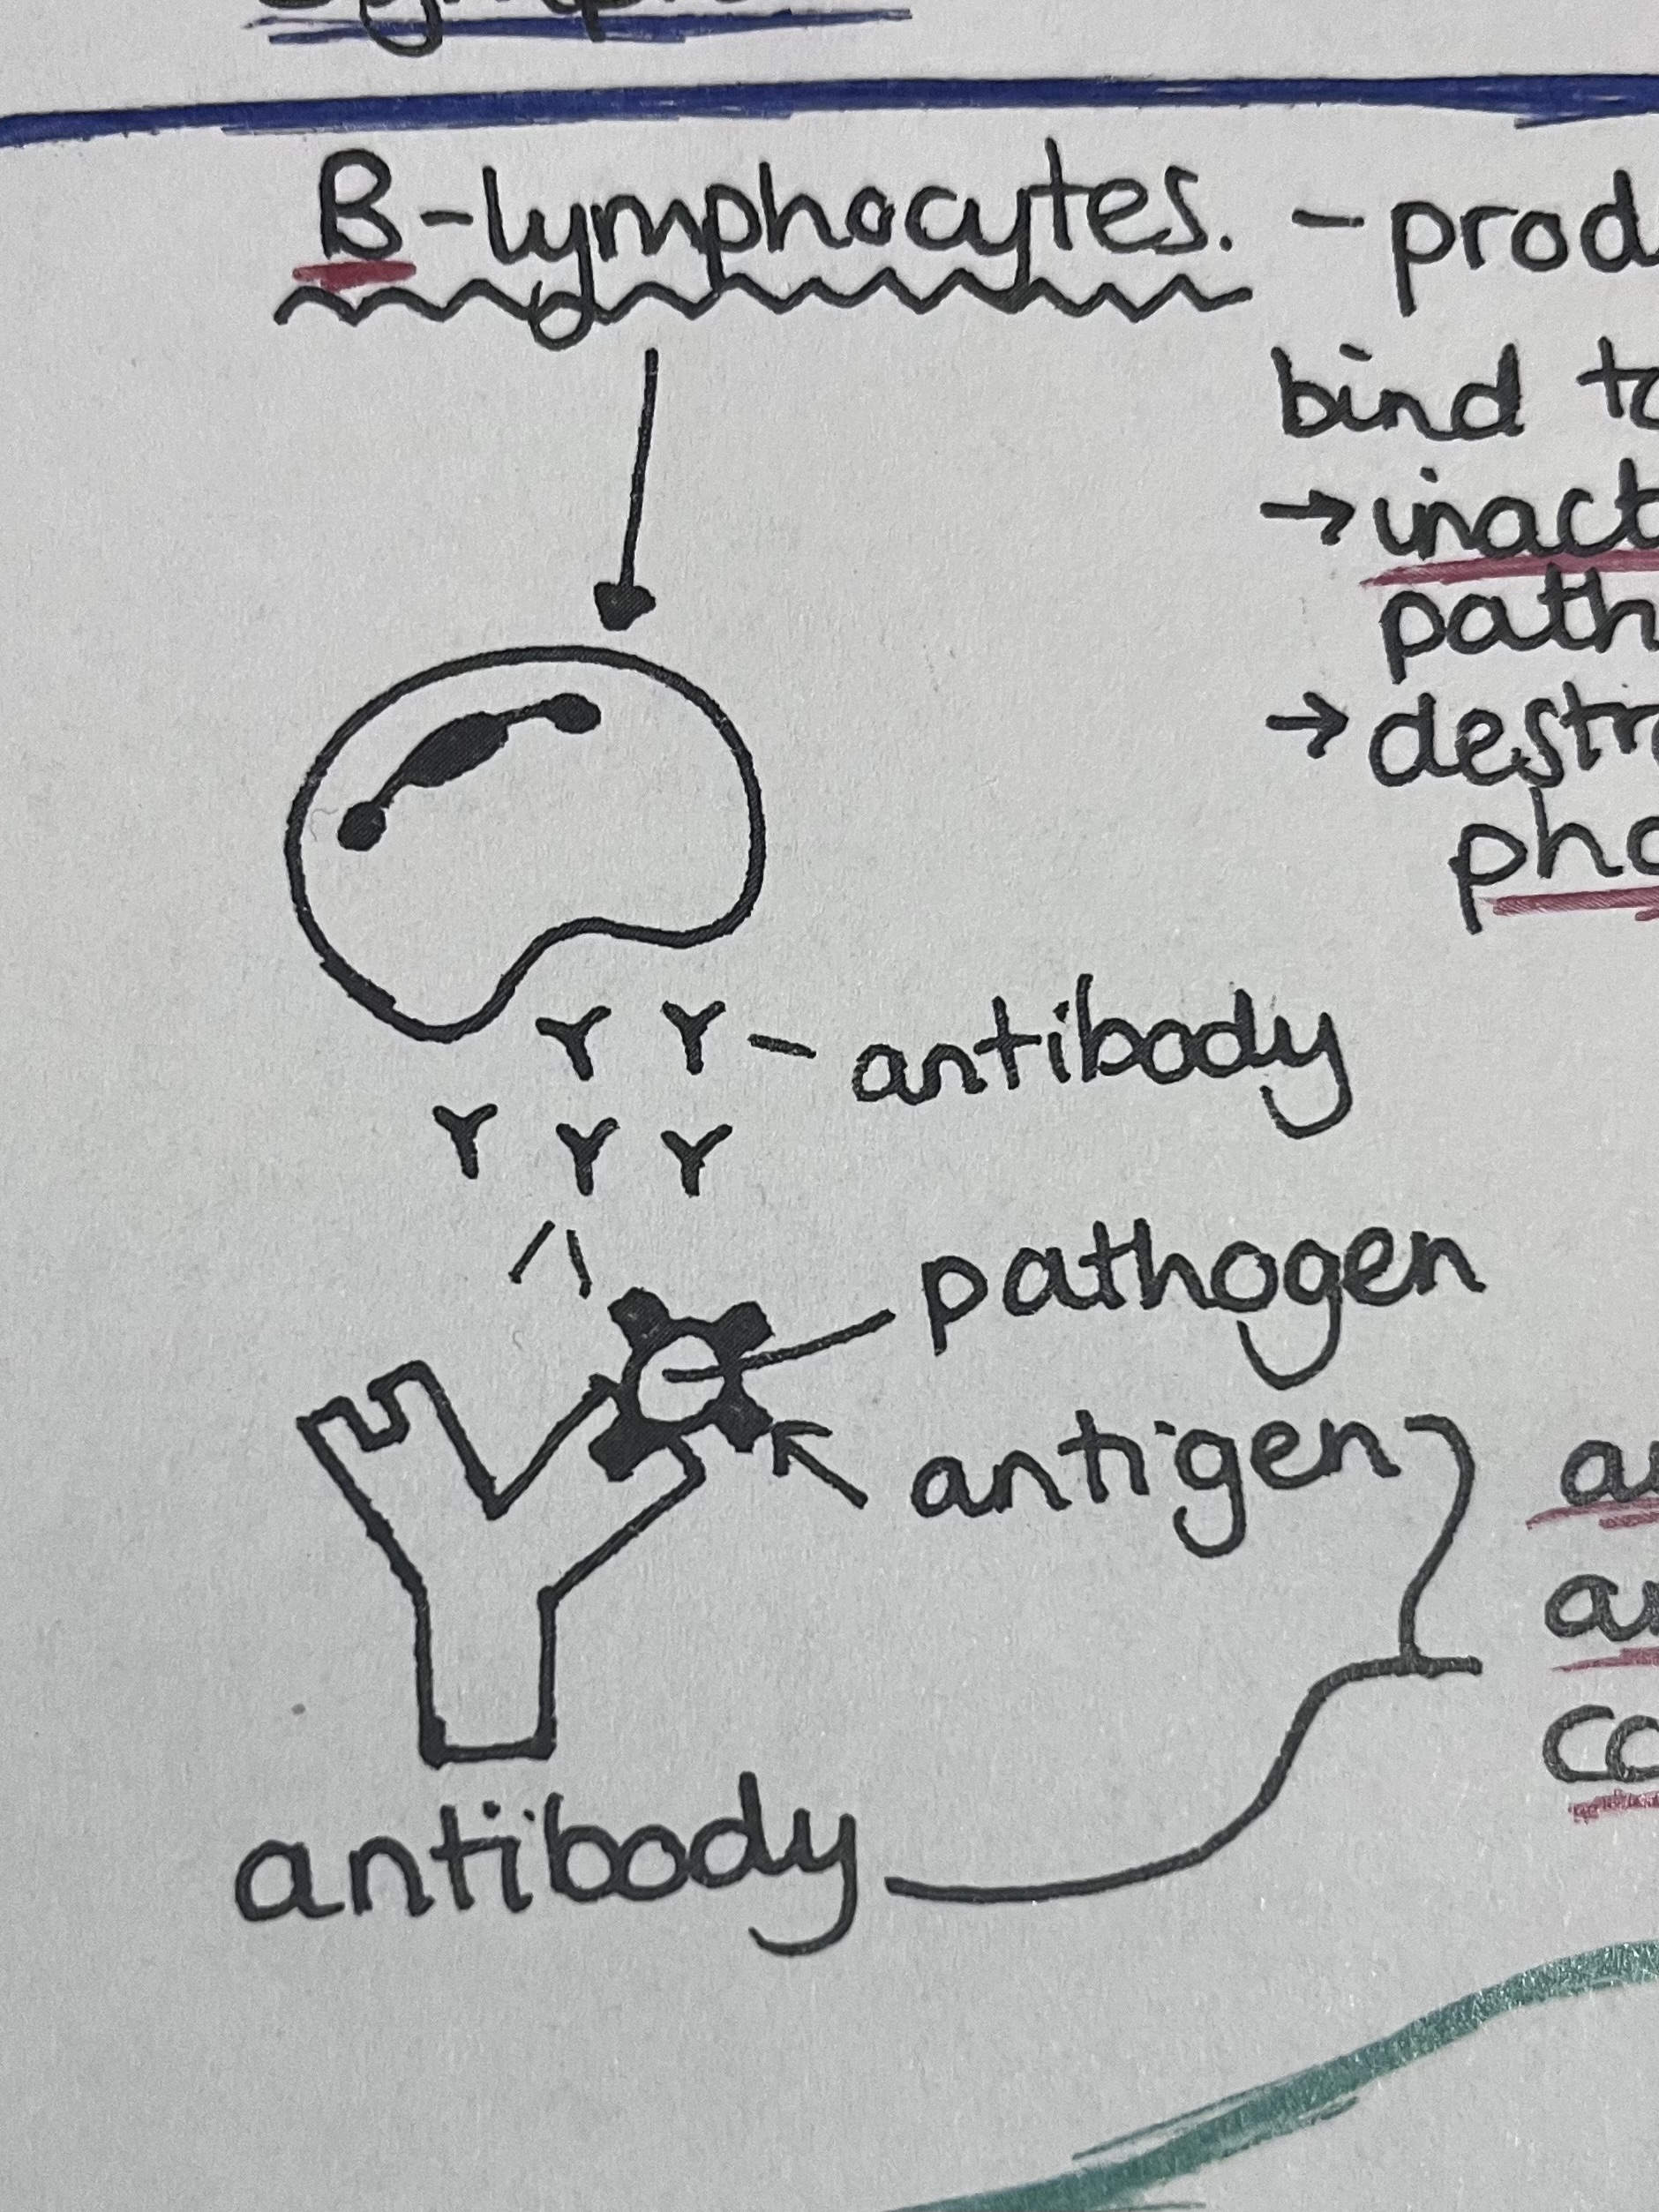 B-lymphocytes. - prod
bind to
→ inact
path
→ destr
pho
antibody
pathogen
antigen
antibody